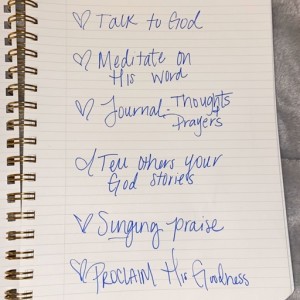 Talk to God
Meditate on
His word
Journal - Thoughts
Prayers
Tell others your
God stories
Singing praise
PROCLAIM His Goodness